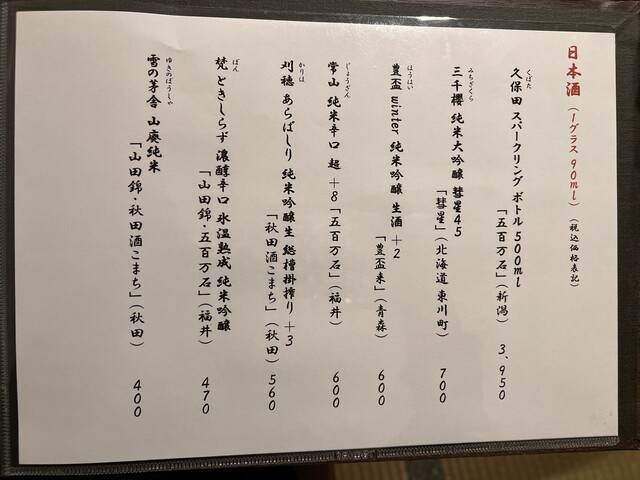 日本酒 (1グラス90ml) (税込価格表記)
くぼた
久保田 スパークリング ボトル 500ml
「五百万石」(新潟) 3,950
みちざくら
三千櫻 純米大吟醸 彗星45
「彗星」(北海道 東川町) 700
ほうはい
豊盃 winter 純米吟醸 生酒 +2
「豊盃米」(青森) 600
じょうざん
常山 純米辛口 超 +8「五百万石」(福井) 600
かりほ
刈穂 あらばしり 純米吟醸生 総槽掛搾り +3
「秋田酒こまち」(秋田) 560
ぼん
梵 ときしらず 濃醇辛口 氷温熟成 純米吟醸
「山田錦・五百万石」(福井) 470
ゆきのぼうしゃ
雪の茅舎 山廃純米
「山田錦・秋田酒こまち」(秋田) 400